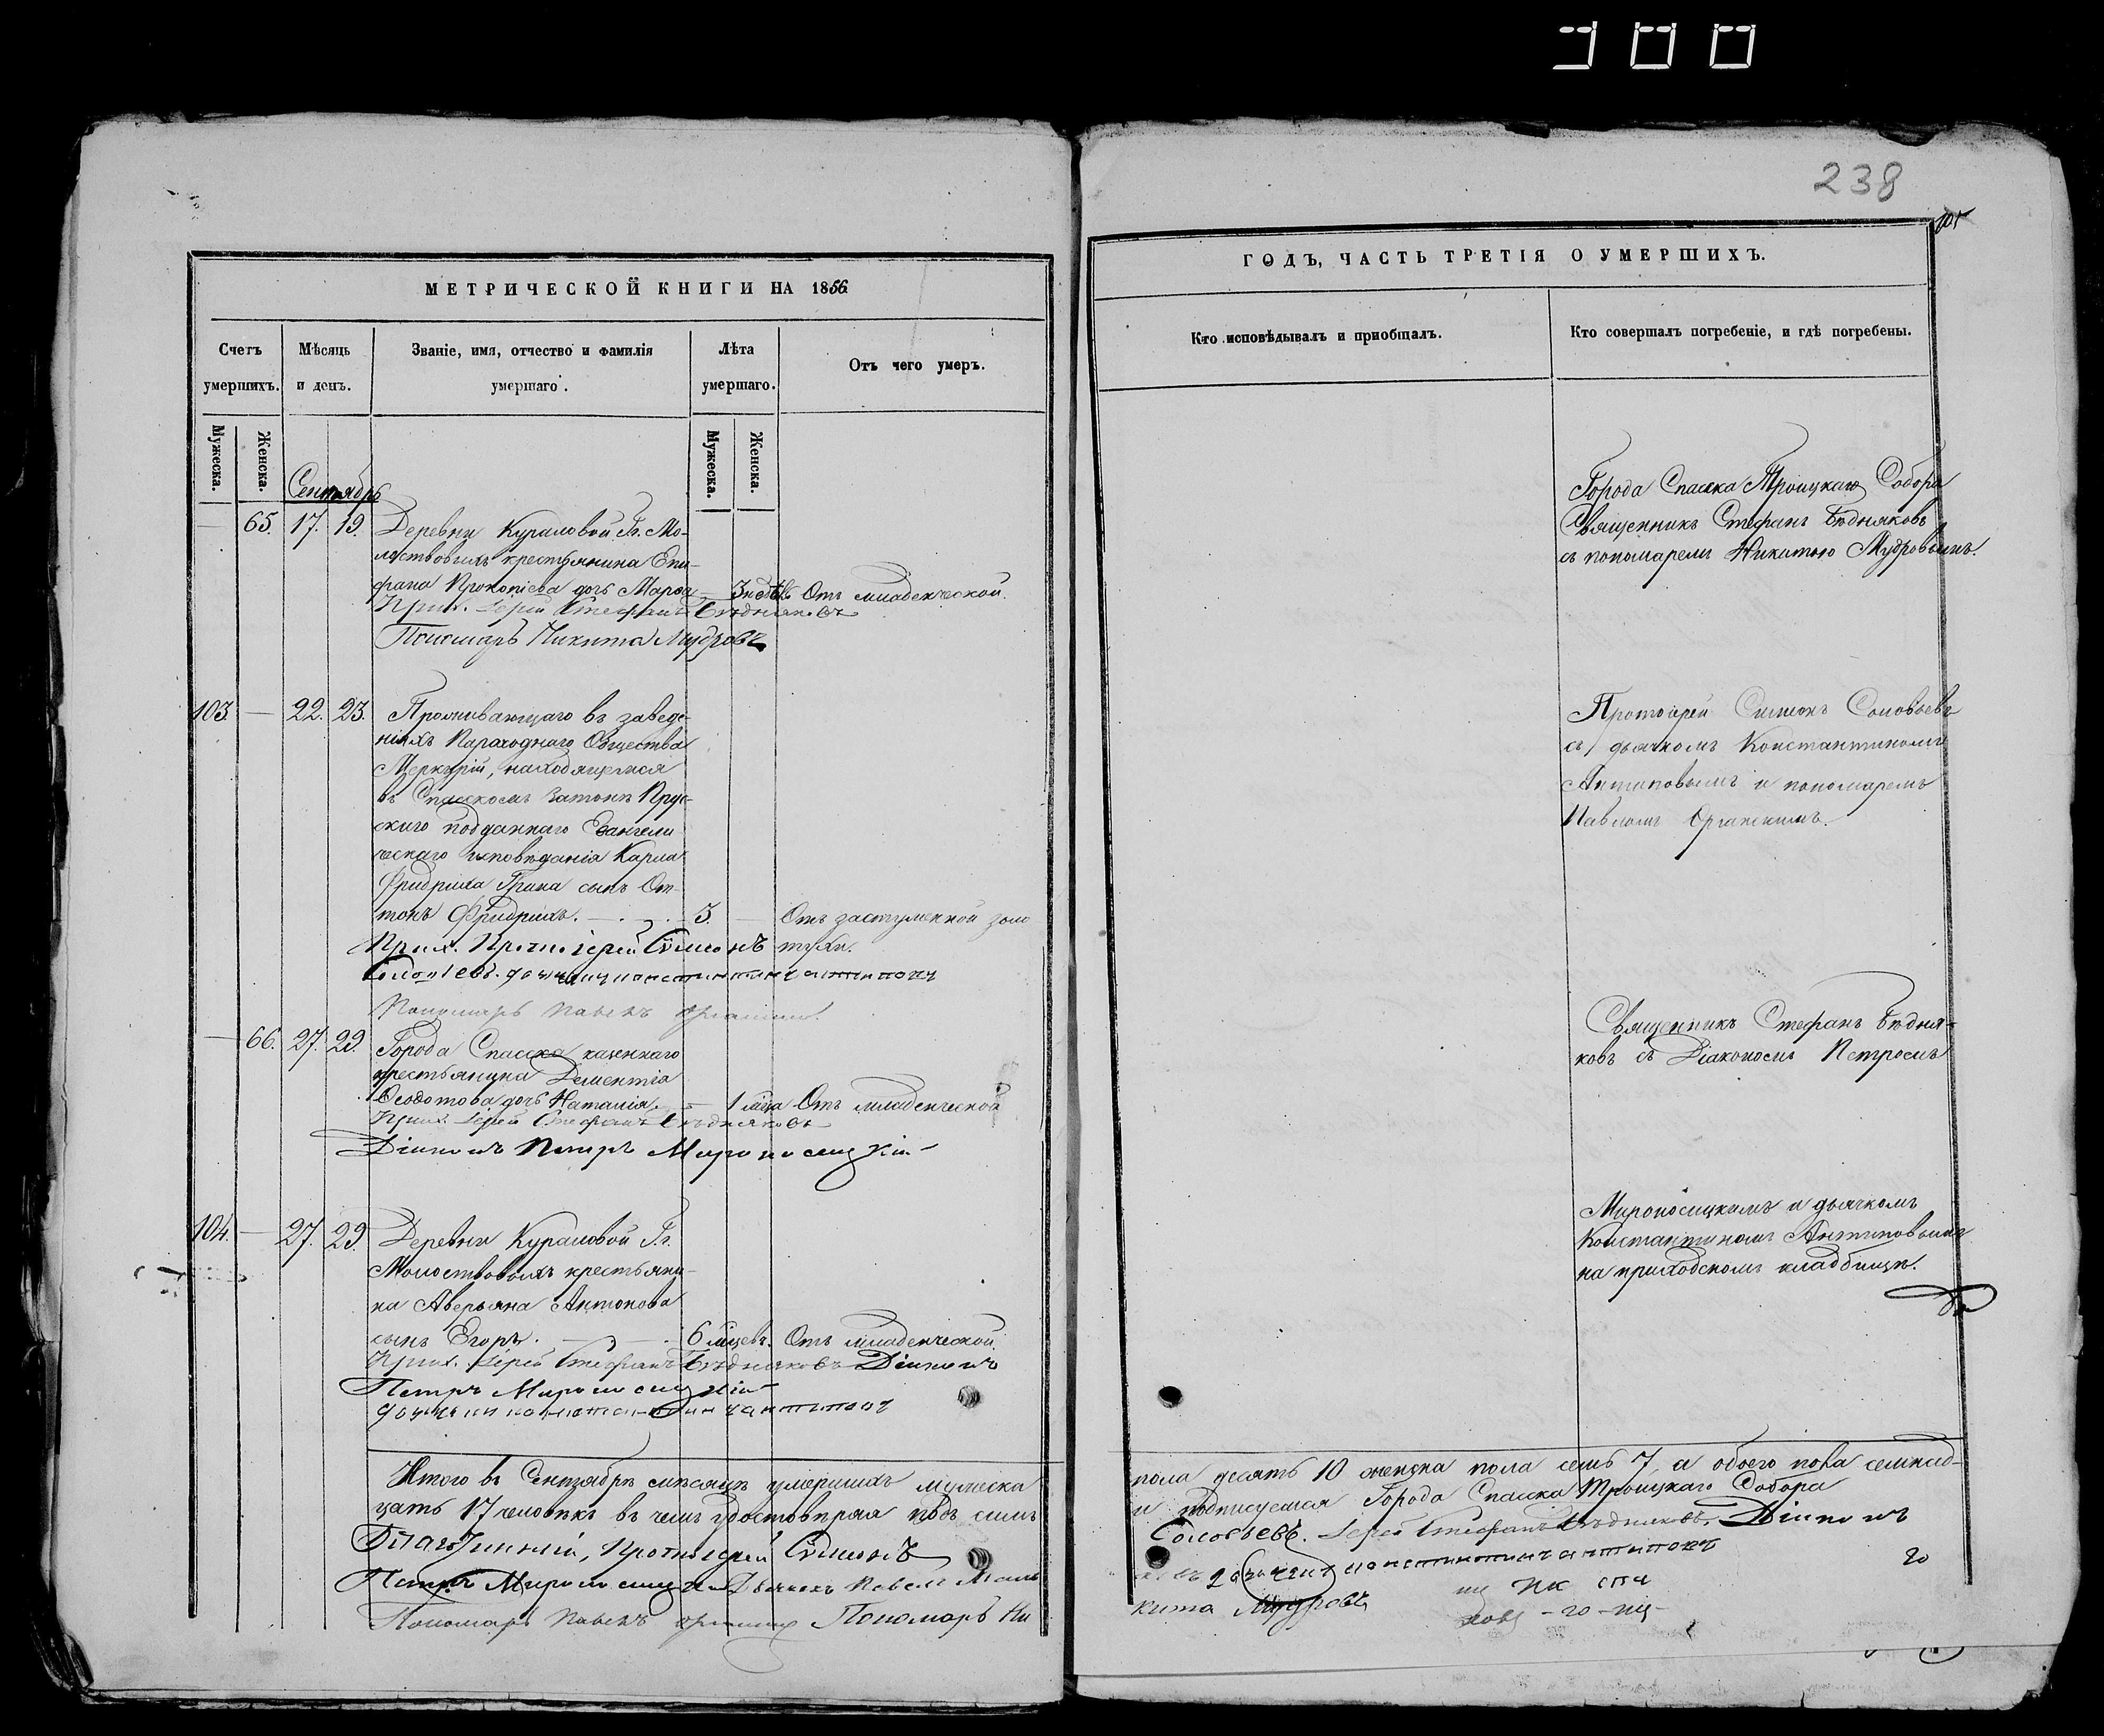 238
105
МЕТРИЧЕСКОЙ КНИГИ НА 1866
Счетъ умершихъ.
Мѣсяцъ и день.
Званіе, имя, отчество и фамилія умершаго.
Лѣта умершаго.
Отъ чего умеръ.
Мужеска.
Женска.
Мужеска.
Женска.
Сентябрь
— 65. 17. 19. Деревни Кураловой Гг. Мо-
лоствовыхъ крестьянина Епи-
фана Прокопіева дочь Марѳа — 3 недѣль Отъ младенческой.
Прих. Іерей Стефанъ Бѣдняковъ
Пономарь Никита Мудровъ
103. — 22. 23. Проживающаго въ заведе-
ніяхъ Пароходнаго Общества
Меркурій, находящемся
въ Спасскомъ Затонѣ Прус-
скаго подданнаго Евангели
ческаго исповѣданія Карла
Фридриха Грана сынъ От-
тонъ Фридрихъ. 5. — Отъ застуженной золо
тухи.
Прих. Протоіерей Симеонъ
Соловьевъ. дьячекъ Константинъ Антиповъ
Пономарь Павелъ
— 66. 27. 29. Города Спасска казеннаго
крестьянина Дементія
Ѳеодотова дочь Наталія. — 1 мѣсца Отъ младенческой
Прих. Іерей Стефанъ Бѣдняковъ
Діаконъ Петръ Мироносицкій
104. — 27. 29. Деревни Кураловой Гг.
Молоствовыхъ крестьяни-
на Аверьяна Антонова
сынъ Егоръ. 6 мѣцевъ. Отъ младенческой.
Прих. Іерей Стефанъ Бѣдняковъ Діаконъ
Петръ Мироносицкій
дьячекъ Константинъ Антиповъ
Итого въ Сентябрѣ мѣсяцѣ умершихъ мужеска
цать 17 человѣкъ въ чемъ удостовѣряя подъ симъ
Благочинный, Протоіерей Симеонъ
Петръ Мироносицкій Дьячекъ Павелъ
Пономарь Павелъ Пономарь Ни
ГОДЪ, ЧАСТЬ ТРЕТІЯ О УМЕРШИХЪ.
Кто исповѣдывалъ и пріобщалъ.
Кто совершалъ погребеніе, и гдѣ погребены.
Города Спасска Троицкаго Собора
Священникъ Стефанъ Бѣдняковъ
съ пономаремъ Никитою Мудровымъ.
Протоіерей Симеонъ Соловьевъ
съ дьячкомъ Константиномъ
Антиповымъ и пономаремъ
Павломъ
Священникъ Стефанъ Бѣдня-
ковъ съ Діакономъ Петромъ
Мироносицкимъ и дьячкомъ
Константиномъ Антиповымъ
на приходскомъ кладбищѣ.
пола десять 10 женска пола семь 7, а обоего пола семнад-
и подписуемся Города Спасска Троицкаго Собора
Соловьевъ. Іерей Стефанъ Бѣдняковъ. Діаконъ
дьячекъ Константинъ Антиповъ
кита Мудровъ